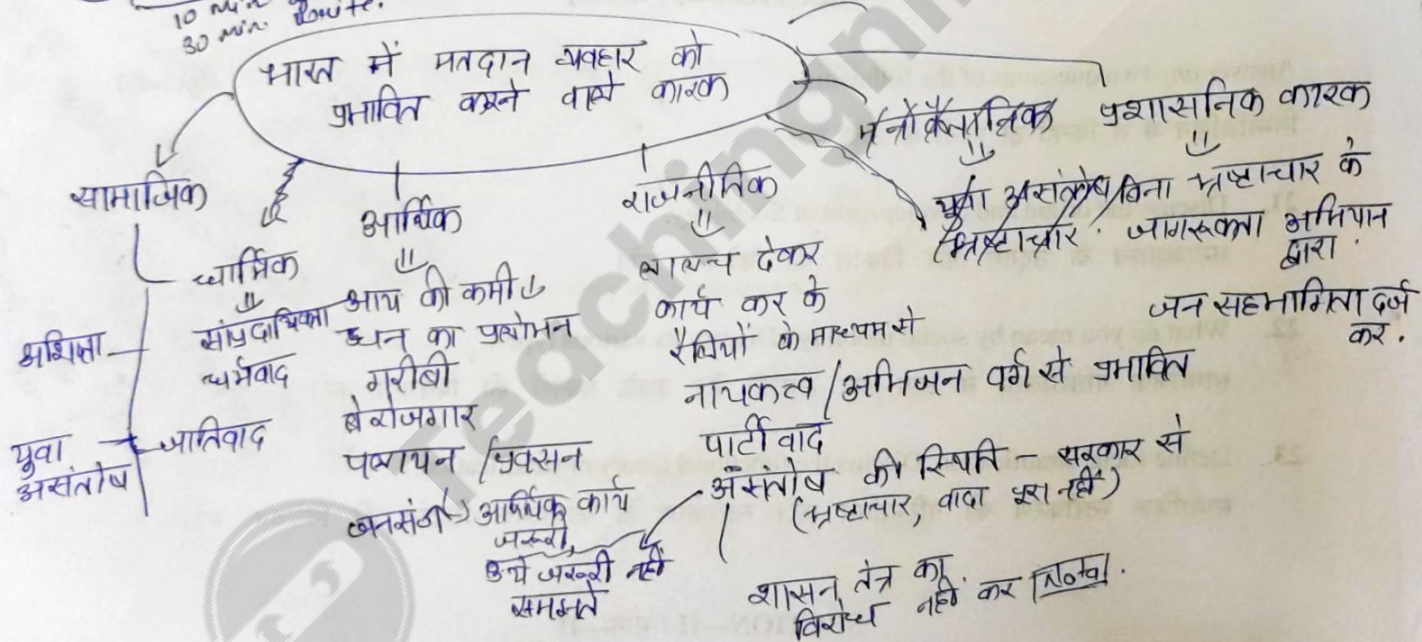 10 min
30 min
भारत में मतदान व्यवहार को
प्रभावित करने वाले कारक
सामाजिक
अशिक्षा
जातिवाद
युवा
असंतोष
धार्मिक
सांप्रदायिकता
धर्मवाद
आर्थिक
आय की कमी
धन का प्रलोभन
गरीबी
बेरोजगार
पलायन / प्रवसन
आर्थिक कार्य
जरूरी,
जरूरी नहीं
समझते
राजनीतिक
लालच देकर
कार्य कर के
रैलियों के माध्यम से
नायकत्व / अभिजन वर्ग से प्रभावित
पार्टीवाद
असंतोष की स्थिति – सरकार से
(भ्रष्टाचार, वादा पूरा नहीं)
शासन तंत्र का
विरोध नहीं कर Nota.
मनोवैज्ञानिक
युवा असंतोष
भ्रष्टाचार.
प्रशासनिक कारक
बिना भ्रष्टाचार के
जागरूकता अभियान
द्वारा.
जन सहभागिता दर्ज
कर.
Teaching